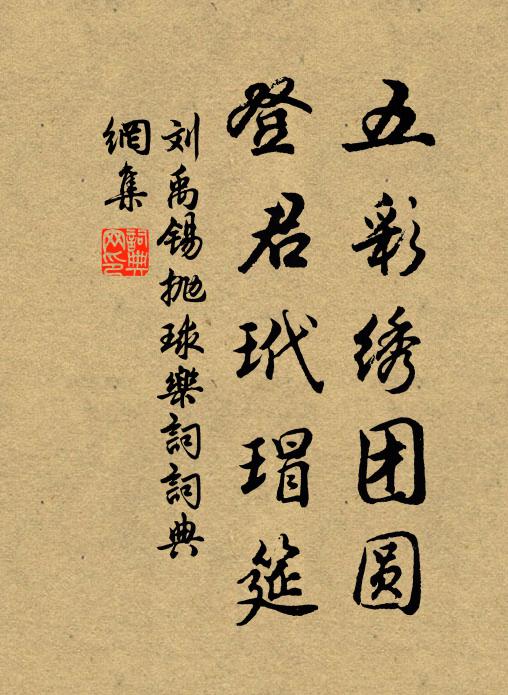 五彩绣团圆
登君玳瑁筵
刘禹锡抛球樂詞詞典
網集
詞典網印